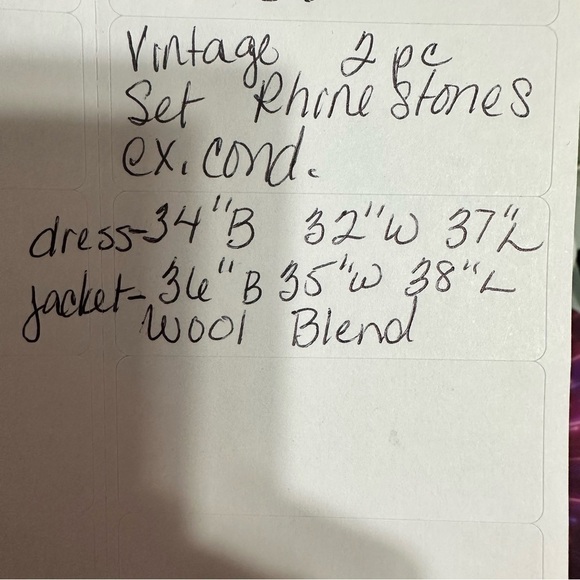 Vintage 2 pc
Set Rhine Stones
ex. cond.
dress-34"B 32"W 37"L
jacket-36"B 35"W 38"L
Wool Blend